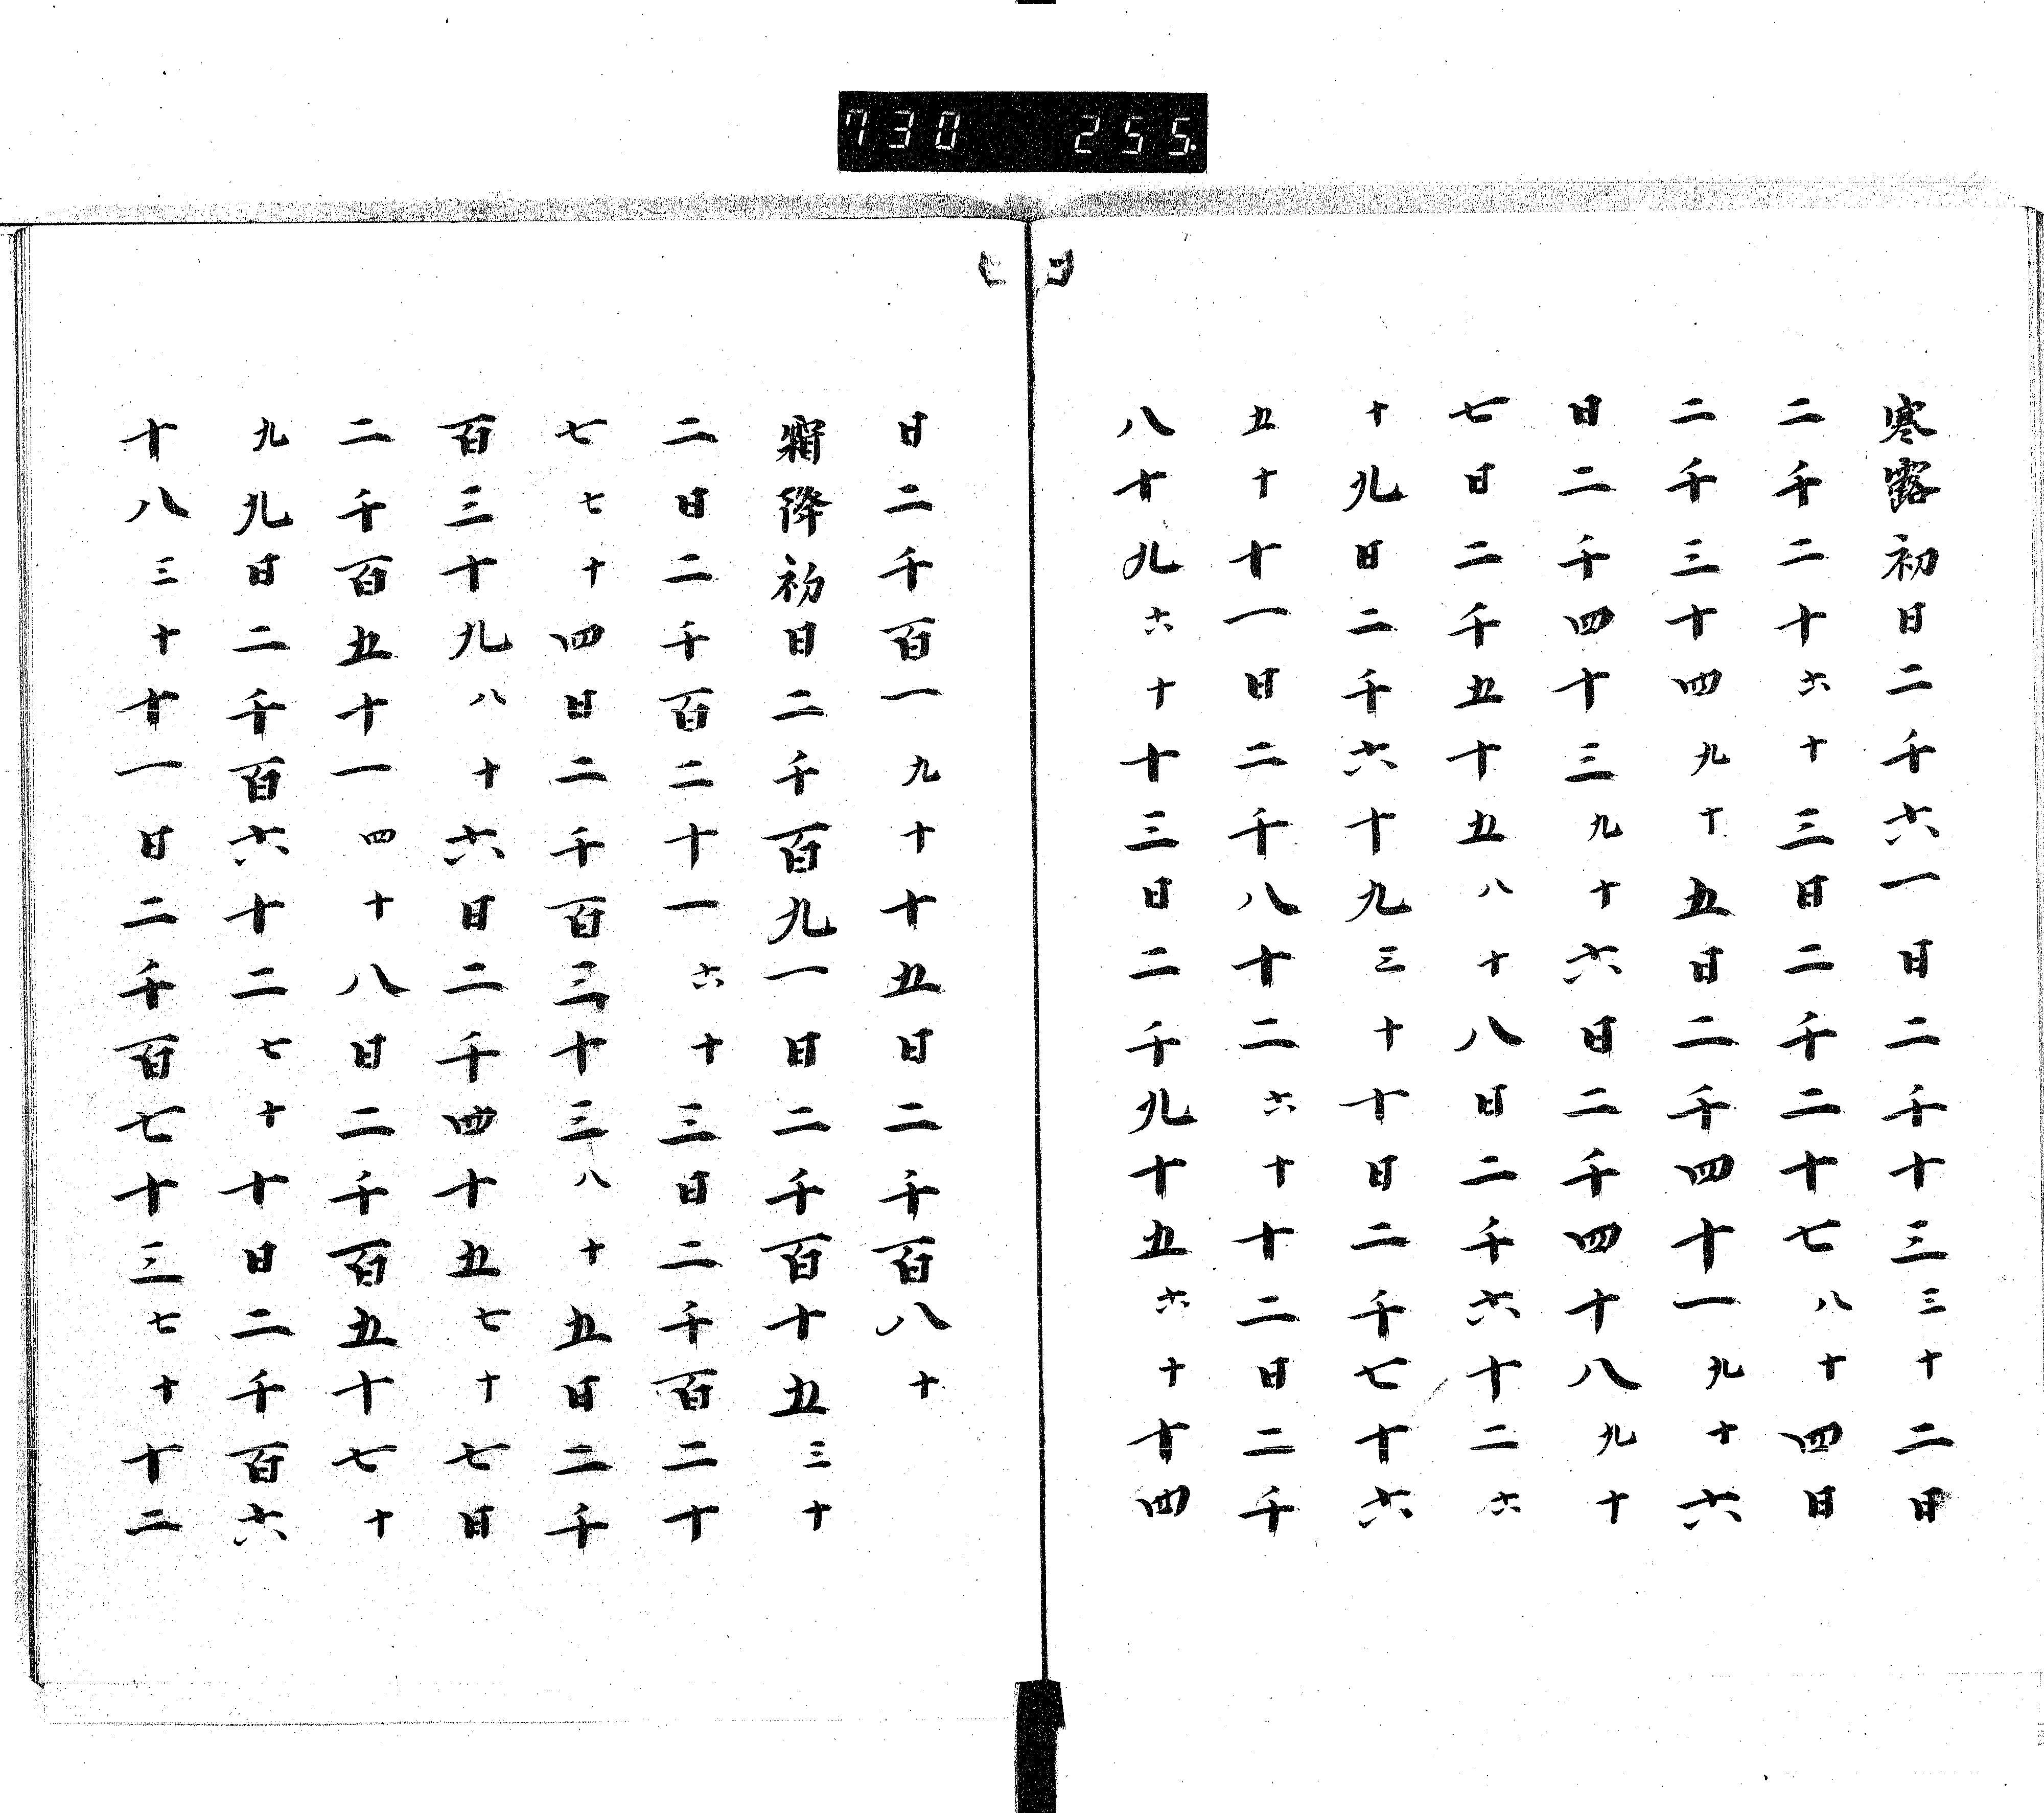 730 255.
寒露初日二千六一日二千十三三十二日
二千二十六十三日二千二十七八十四日
二千三十四九十五日二千四十一九十六
日二千四十三九十六日二千四十八九十
七日二千五十五八十八日二千六十二六
十九日二千六十九三十十日二千七十六
五十十一日二千八十二六十十二日二千
八十九六十十三日二千九十五六十十四
日二千百一九十十五日二千百八十
霜降初日二千百九一日二千百十五三十
二日二千百二十一六十三日二千百二十
七七十四日二千百三十三八十五日二千
百三十九八十六日二千四十五七十七日
二千百五十一四十八日二千百五十七十
九九日二千百六十二七十十日二千百六
十八三十十一日二千百七十三七十十二